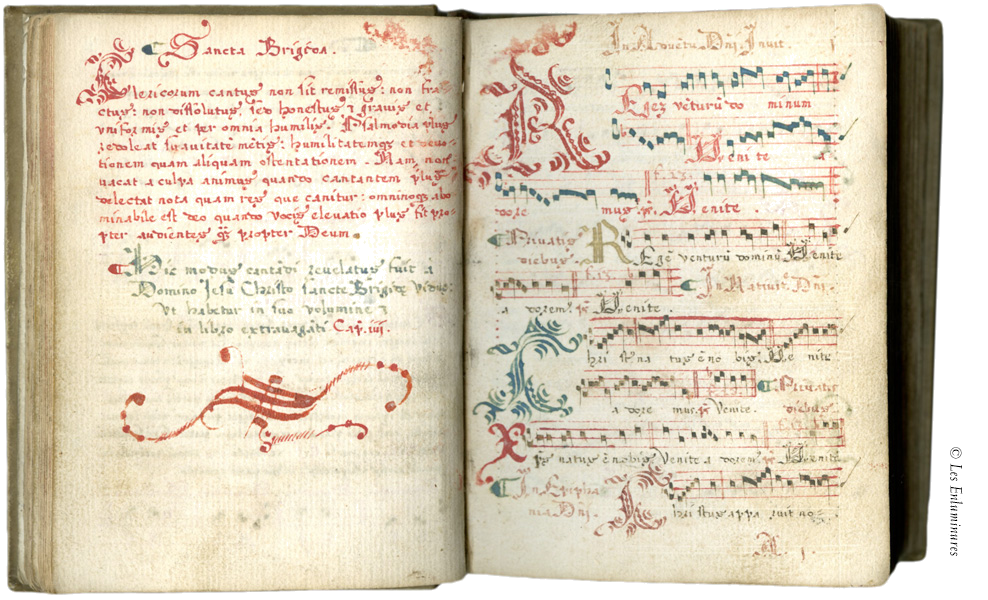 Sancta Brigida.
Clericorum cantus non sit remissus: non fra-
ctus: non dissolutus, sed honestus & gravis et
uniformis et per omnia humilis. Psalmodia plus
redoleat suavitatē mētis: humilitatemq; et devo-
tionem quam aliquam ostentationem. Nam non
vacat a culpa animus quando cantantem plus
delectat nota quam res que canitur: omninoq; abo
minabile est deo quando vocis elevatio plus fit pro-
pter audientes q̄ propter Deum.
Hic modus cantādi revelatus fuit a
Domino Jesu Christo sancte Brigide Vidue:
Ut habetur in suo volumine &
in libro extravagāti Cap. iiij.
In Advētu Dn̄i. Invit.
Regē vēturū do minum
Venite
dore mus. ps. Venite.
Privatis
diebus.
Regē venturū dominū Venite
a dorem9 ps. Venite
In Nativit. Dn̄i.
Christ9 na tus ē no bis, Ve nite
a dore mus. ps Venite.
Privatis
diebus.
Xp̄s natus ē nobis Venite a dorem9 ps. Venite
In Epipha
nia Dn̄i.
Christus appa ruit no-
© Les Enluminures